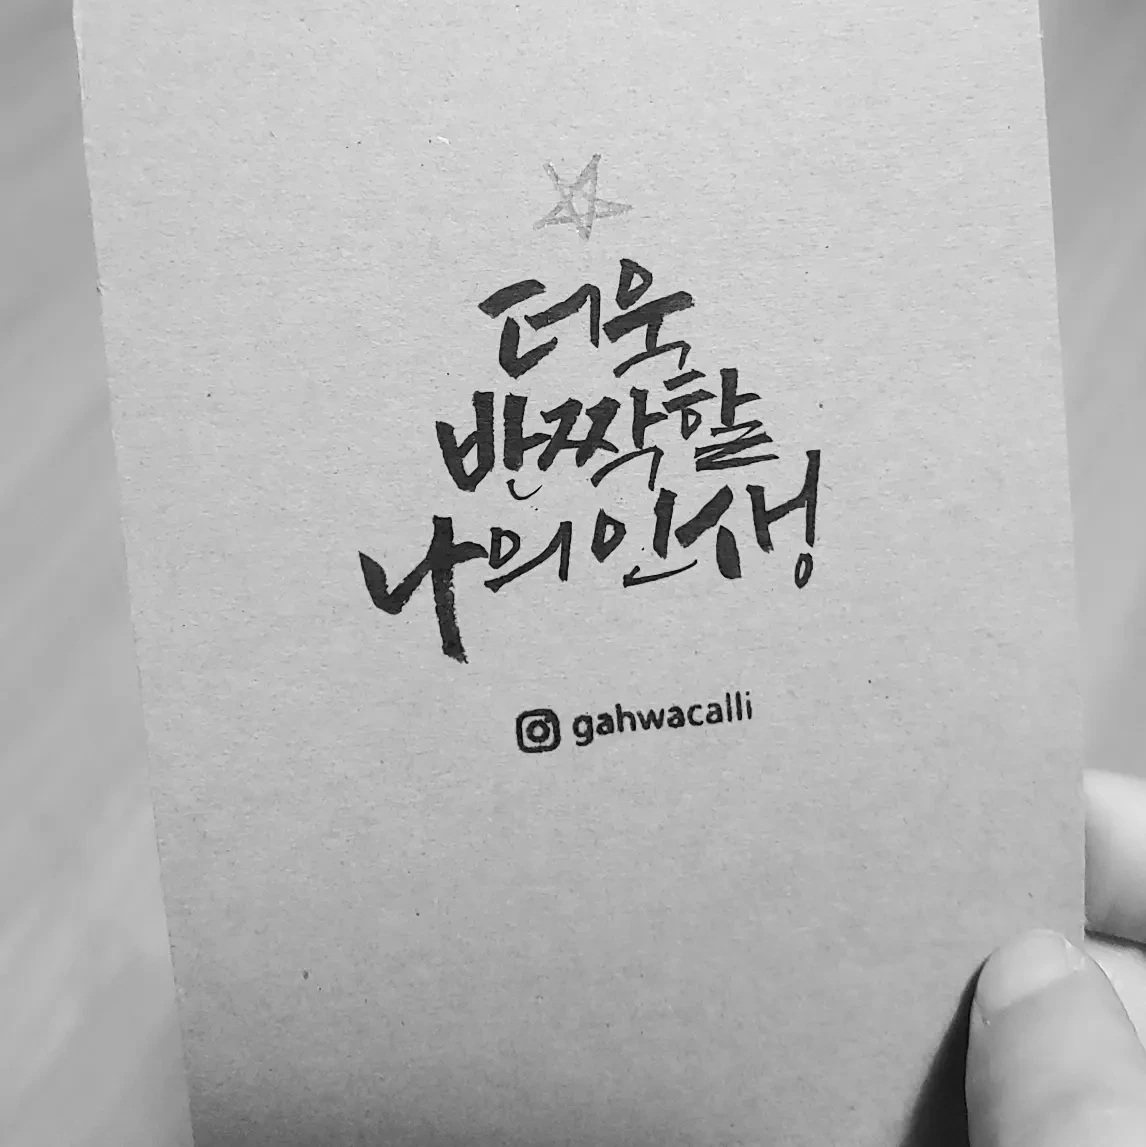 더욱
반짝할
나의 인생
gahwacalli